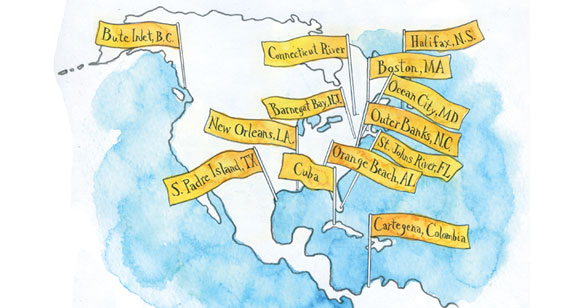 Bute Inlet, B.C.
Connecticut River
Halifax, N.S.
Boston, MA
Ocean City, MD
Barnegat Bay, N.J.
Outer Banks, N.C.
New Orleans, LA
St. Johns River, FL
Orange Beach, AL
S. Padre Island, TX
Cuba
Cartegena, Colombia